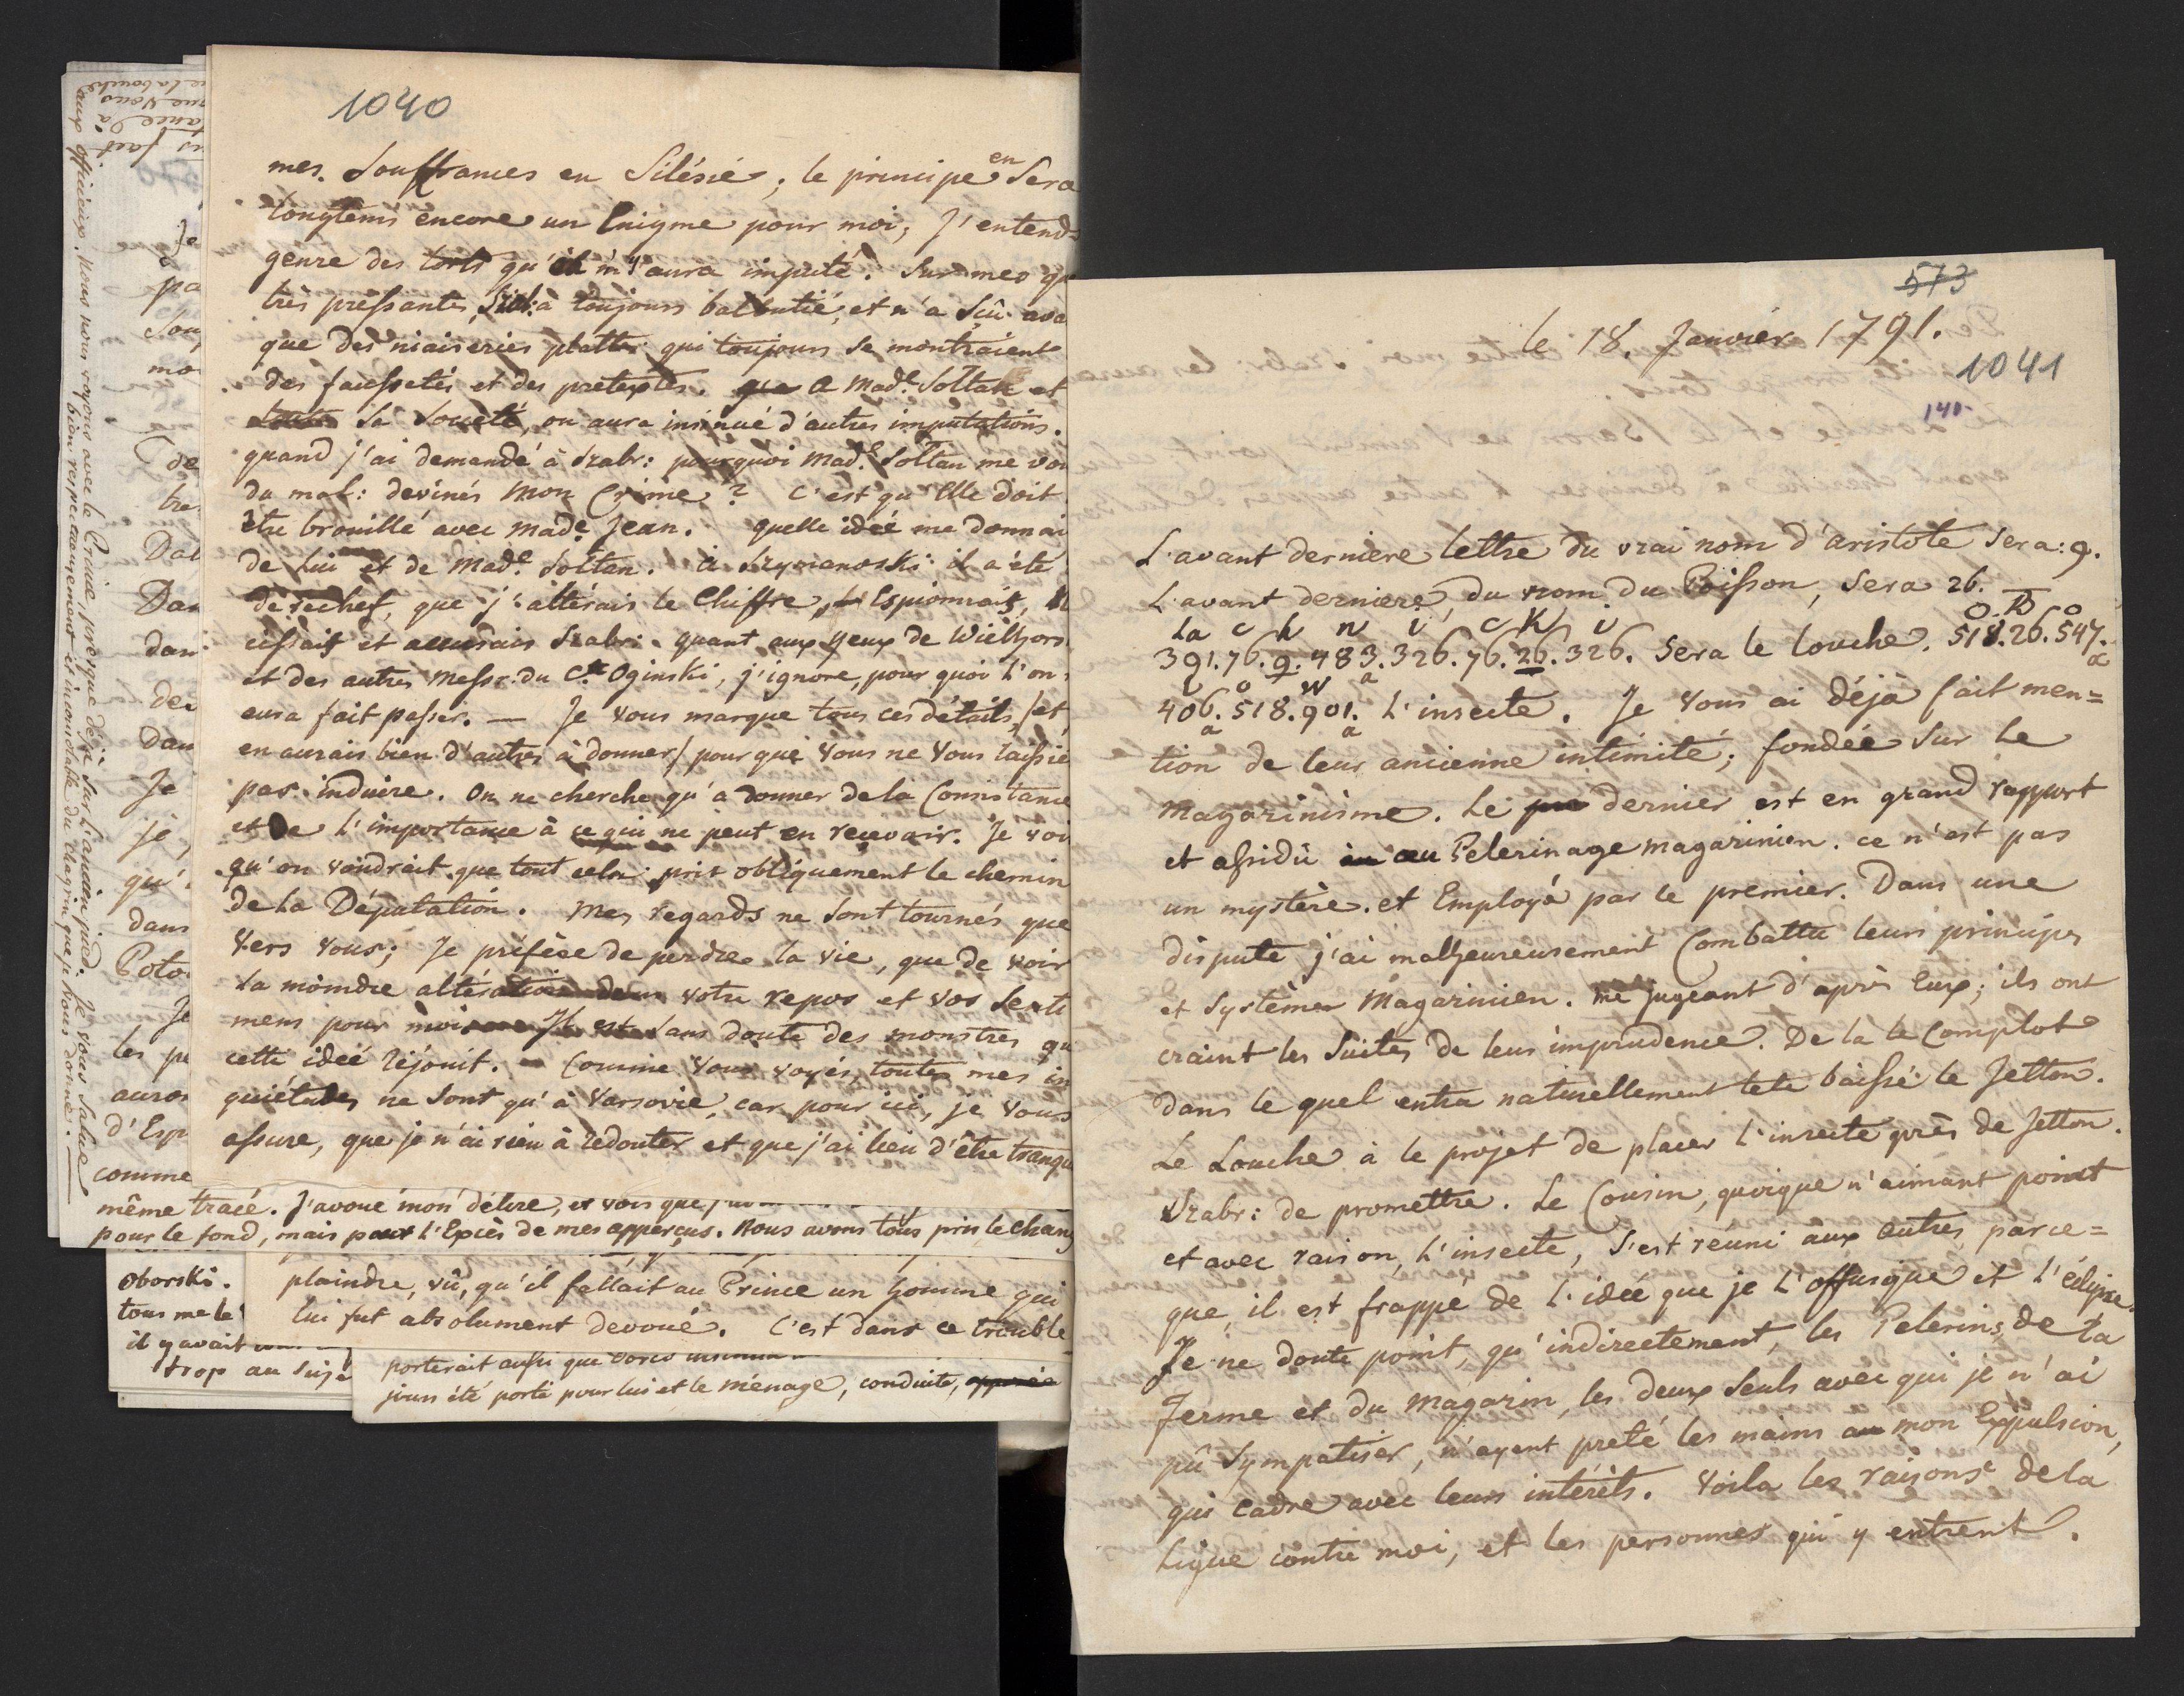 1040
mes Souffrances en Silésie; le principe en Sera
longtems encore un Enigme pour moi, J'entends
genre des torts qu'il m'aura imputé. Sur mes qu
très préssantes, à toujours balbutié, et n'a Sçû ava
que des niaiseries plattes qui toujours se montraient
des faussetés et des pretextes. a Made. Soltan et
Sa Societé, on aura insinué d'autres imputations.
quand j'ai demandé à Szabr: pourquoi Made. Soltan me vou
du mal: devinés mon Crime? C'est qu'Elle doit
être brouillé avec Made. Jean. quelle idée me donnai
de Lui et de Made. Soltan. à Szymanoski il a été
derechef, que j'altérais le Chiffre, Espionnait,
et accusais Szabr: quant aux yeux de Wielhors
et des autres Messr. du Cte Oginski, j'ignore, pour quoi l'on
aura fait passer. — Je vous marque tous ces détails /et
en aurais bien d'autres à donner/ pour que vous ne vous laissié
pas induire. On ne cherche qu'a donner de la Consistance
et de l'importance à ce qui ne peut en recevoir. Je voi
qu'on voudrait que tout cela prit obliquement le chemin
de la Députation. Mes regards ne sont tournés que
vers vous; Je préfère de perdre la vie, que de voir
la moindre altération dans votre repos et vos Senti
mens pour moi. Il est sans doute des monstres qu
cette idée réjouit. — Comme vous voyés, toutes mes in
quiétudes ne sont qu'à Varsovie, car pour ici, je vous
assure, que je n'ai rien à redouter et que j'ai lieu d'être tranqu
comme
même tracé. J'avoue mon délire, et vois que
pour le fond, mais pour l'Excès de mes apperçus. Nous avons tous pris le chan
aux officieux. Nous nous voyons avec le Prince, presque déjà sur l'ancien pied. Je vous salue
bien respectueusement et inconsolable du chagrin que je vous donne. —
Je
pa
Sou
mo
de
tre
Dal
Dan
dan
de
Dan
Je
je
qu'
dans
Poto
Je
les pe
auro
d'Exp
oborski.
tous me le
il y avait
trop au Suje
plaindre, vû, qu'il fallait au Prince un homme qui
lui fut absolument devoué. C'est dans ce trouble
porterait aussi que
jours été porté pour lui et le ménage, conduite,
573
le 18. Janvier 1791.
1041
140.
L'avant derniere lettre du vrai nom d'aristote Sera: 9.
L'avant derniere, du nom du Poisson, Sera 26.
La c h n i c K i O. B O
391.76.9.483.326.76.26.326. Sera le louche. 518.26.547.
o w a a
406.518.901. L'insecte. Je vous ai déjà fait men=
a a
tion de leur ancienne intimité; fondée sur le
magazinisme. Le dernier est en grand rapport
et assidû au Pelerinage magazinien. ce n'est pas
un mystère. et Employé par le premier. Dans une
dispute j'ai malheureusement Combattu leurs principes
et Systèmes Magazinien. me jugeant d'après Eux; ils ont
craint les Suites de leur imprudence. De la le Complot
dans le quel entra naturellement tete baissé le Jetton.
Le Louche à le projet de placer l'insecte près de Jetton.
Szabr: de promettre. Le Cousin, quoique n'aimant point
et avec raison, L'insecte, s'est réuni aux autres, parce=
que, il est frappé de l'idée que je L'offusque et l'éclipse.
Je ne doute point, qu'indirectement, les Pelerins, de la
Ferme et du Magazin, les deux Seuls avec qui je n'ai
pû Sympatiser, n'ayent preté les mains mon Expulsion,
qui Cadre avec leurs intérêts. Voila les raisons de la
Ligue contre moi, et les personnes qui y entrent.